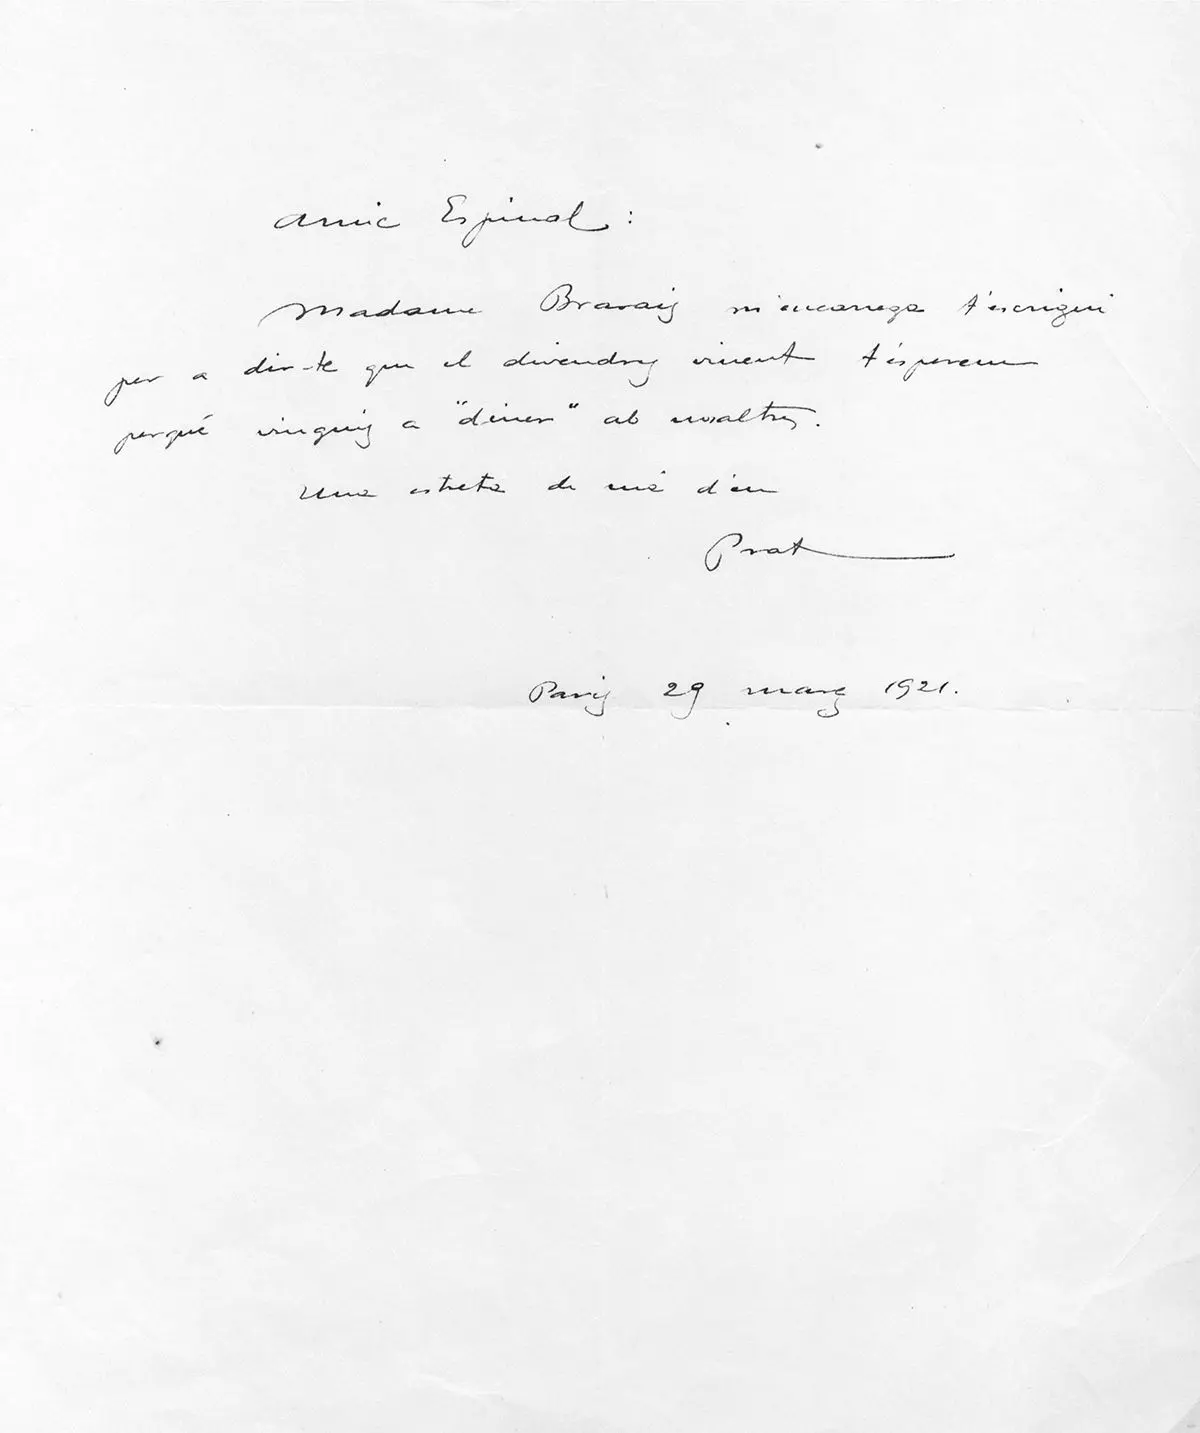 Amic Espinal:
Madame Bravais m'encarrega t'escrigui
per a dir-te que el divendres vinent t'esperem
perquè vinguis a "dîner" ab nosaltres.
Una estreta de mà d'en
Prat
Paris 29 març 1921.